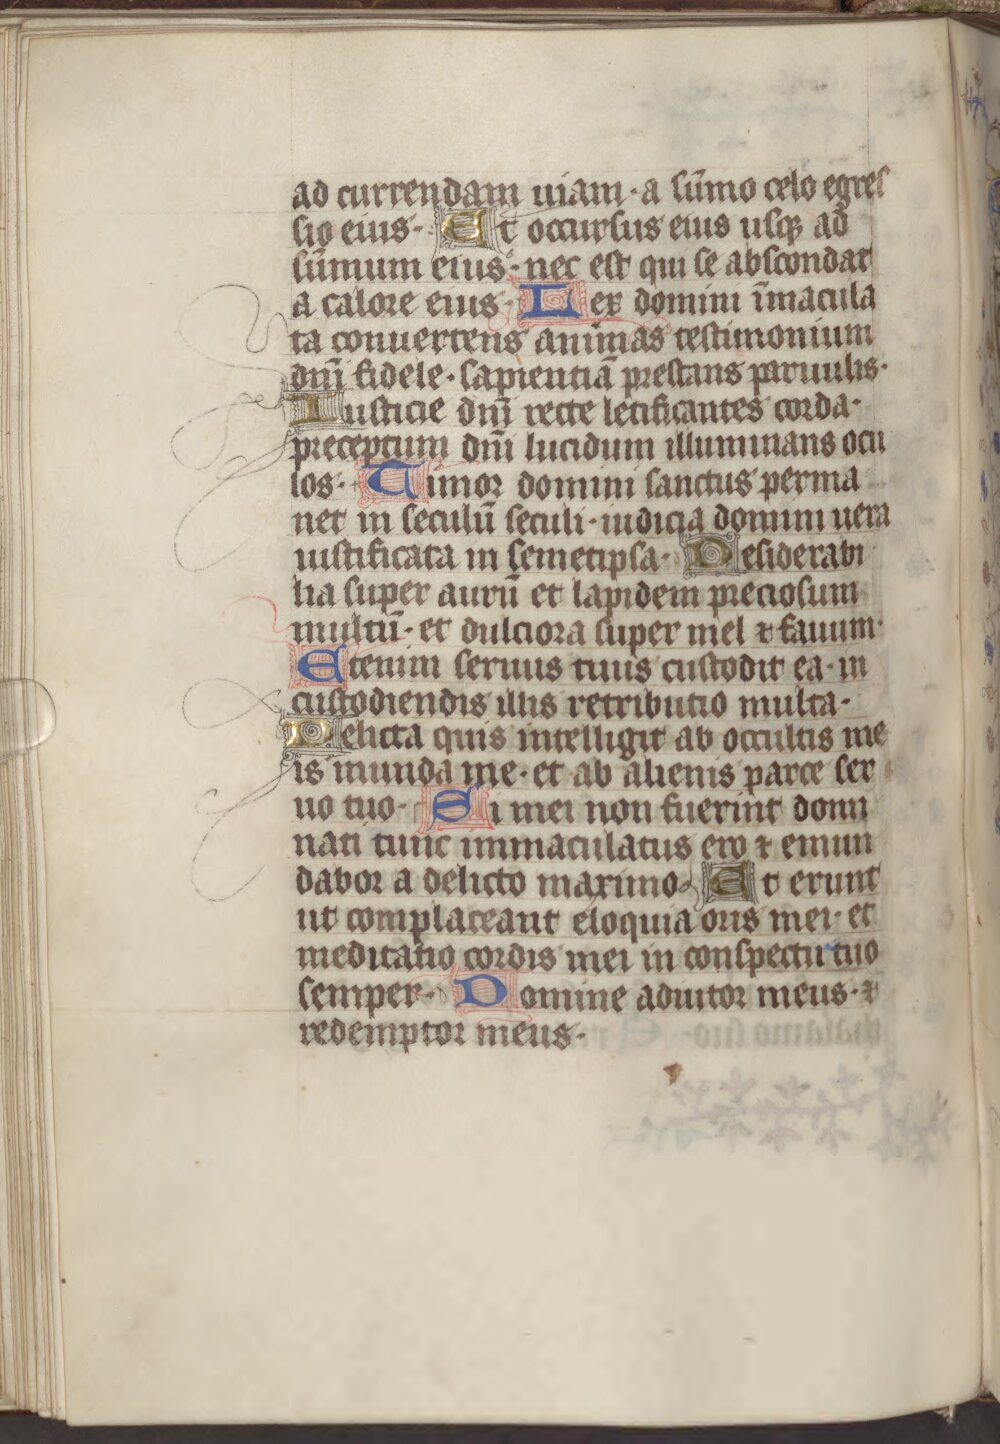 ad currendam uiam · a sūmo celo egres
sio eius · Et occursus eius usqꝫ ad
sūmum eius · nec est qui se abscondat
a calore eius · Lex domini īmacula
ta conuertens animas testimonium
dnī fidele · sapientiā prestans paruulis ·
Iusticie dnī recte letificantes corda ·
preceptum dnī lucidum illuminans ocu
los · Timor domini sanctus perma
net in seculū seculi · iudicia domini uera
iustificata in semetipsa · Desiderabi
lia super aurū et lapidem preciosum
multū · et dulciora super mel ⁊ fauum ·
Etenim seruus tuus custodit ea · in
custodiendis illis retributio multa ·
Delicta quis intelligit ab occultis me
is munda me · et ab alienis parce ser
uo tuo · Si mei non fuerint domi
nati tunc immaculatus ero ⁊ emun
dabor a delicto maximo · Et erunt
ut complaceant eloquia oris mei · et
meditatio cordis mei in conspectu tuo
semper · Domine adiutor meus · ⁊
redemptor meus ·